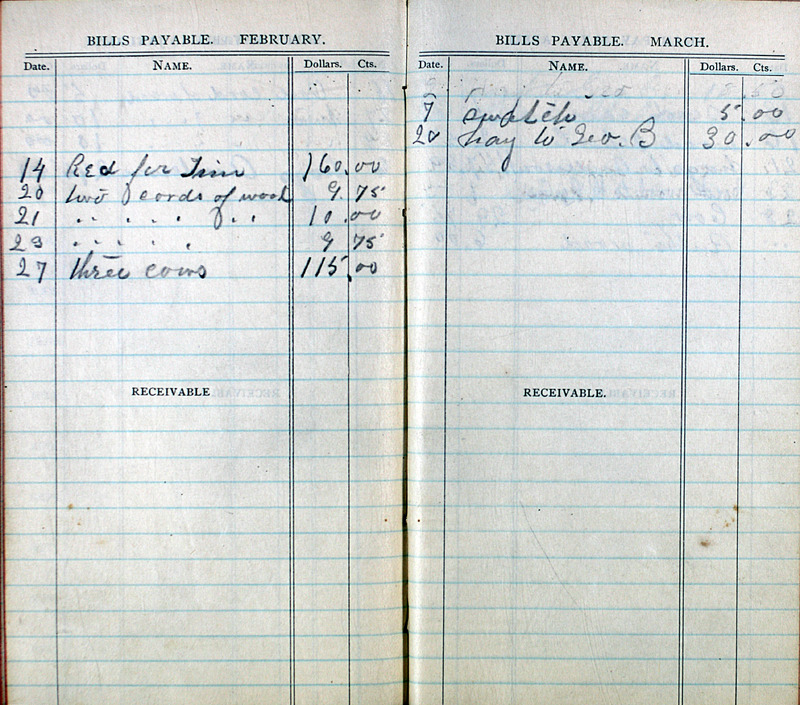 BILLS PAYABLE. FEBRUARY.
Date. NAME. Dollars. Cts.
14 Recd for Tim 160.00
20 two cords of wood 9.75
21 " " " " " " 10.00
23 " " " " " 9 75
27 three cows 115.00
RECEIVABLE
BILLS PAYABLE. MARCH.
Date. NAME. Dollars. Cts.
7 5.00
20 hay to Geo. B 30.00
RECEIVABLE.